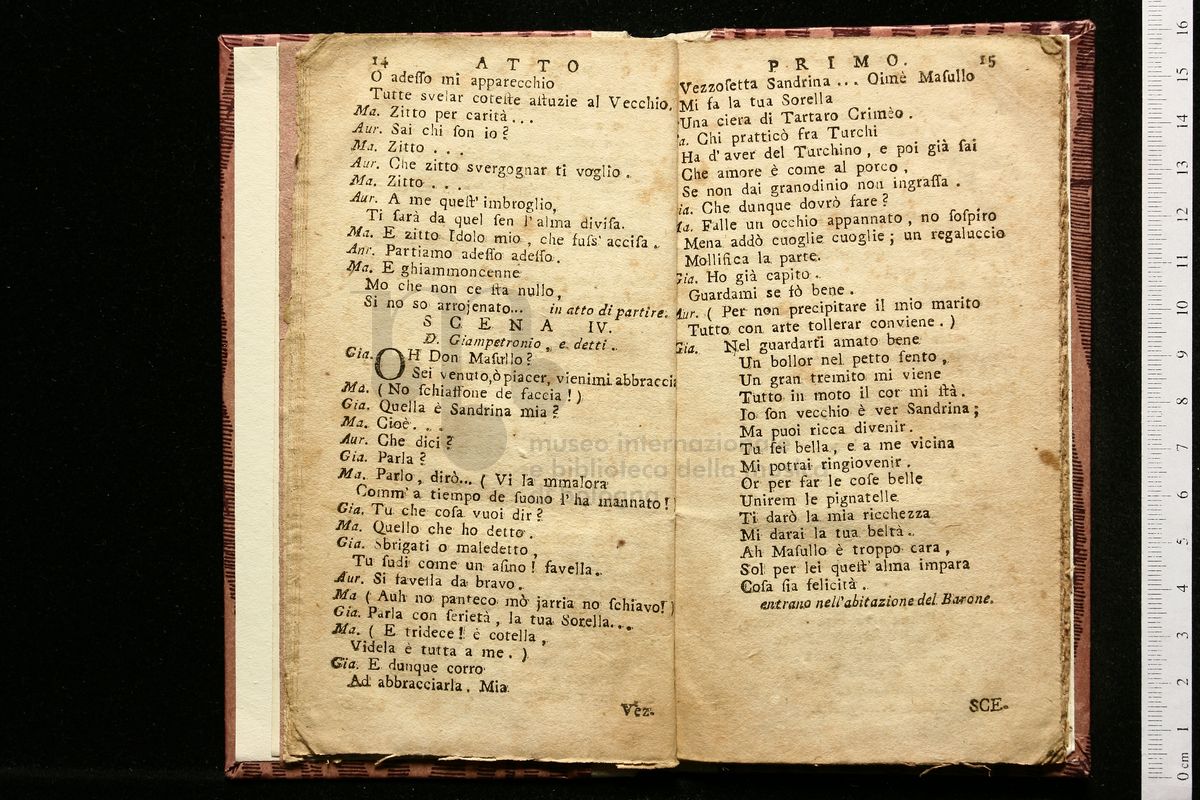 14 ATTO
O adesso mi apparecchio
Tutte svelar coteste astuzie al Vecchio.
Ma. Zitto per carità...
Aur. Sai chi son io?
Ma. Zitto...
Aur. Che zitto svergognar ti voglio.
Ma. Zitto...
Aur. A me quest' imbroglio,
Ti sarà da quel sen l'alma divisa.
Ma. E zitto Idolo mio, che fuss' accisa.
Aur. Partiamo adesso adesso.
Ma. E ghiammoncenne
Mo che non ce sta nullo,
Si no so arrojenato... in atto di partire.
SCENA IV.
D. Giampetronio, e detti.
Gia. OH Don Masullo?
Sei venuto, ò piacer, vienimi abbracci
Ma. (No schiaffone de faccia!)
Gia. Quella è Sandrina mia?
Ma. Cioè...
Aur. Che dici?
Gia. Parla?
Ma. Parlo, dirò... (Vi la mmalora
Comm' a tiempo de suono l'ha mannato!
Gia. Tu che cosa vuoi dir?
Ma. Quello che ho detto.
Gia. Sbrigati o maledetto,
Tu sudi come un asino! favella.
Aur. Si favella da bravo.
Ma (Auh no panteco mò jarria no schiavo!)
Gia. Parla con serietà, la tua Sorella...
Ma. (E tridece! è cotella,
Videla è tutta a me.)
Gia. E dunque corro
Ad abbracciarla. Mia
Vez-
PRIMO. 15
Vezzosetta Sandrina... Oimè Masullo
Mi fa la tua Sorella
Una ciera di Tartaro Crimèo.
a. Chi pratticò fra Turchi
Ha d'aver del Turchino, e poi già sai
Che amore è come al porco,
Se non dai granodinio non ingrassa.
ia. Che dunque dovrò fare?
Ma. Falle un occhio appannato, no sospiro
Mena addò cuoglie cuoglie; un regaluccio
Mollifica la parte.
Gia. Ho già capito.
Guardami se fò bene.
Aur. (Per non precipitare il mio marito
Tutto con arte tollerar conviene.)
Gia. Nel guardarti amato bene
Un bollor nel petto sento,
Un gran tremito mi viene
Tutto in moto il cor mi stà.
Io son vecchio è ver Sandrina;
Ma puoi ricca divenir.
Tu sei bella, e a me vicina
Mi potrai ringiovenir.
Or per far le cose belle
Unirem le pignatelle
Ti darò la mia ricchezza
Mi darai la tua beltà.
Ah Masullo è troppo cara,
Sol per lei quest' alma impara
Cosa sia felicità.
entrano nell'abitazione del Barone.
SCE-
museo internazionale
e biblioteca della musica